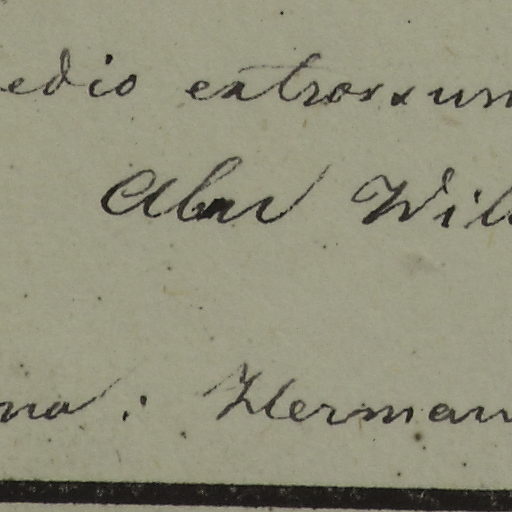 edio extrorsum
Alur Will
na : Herman